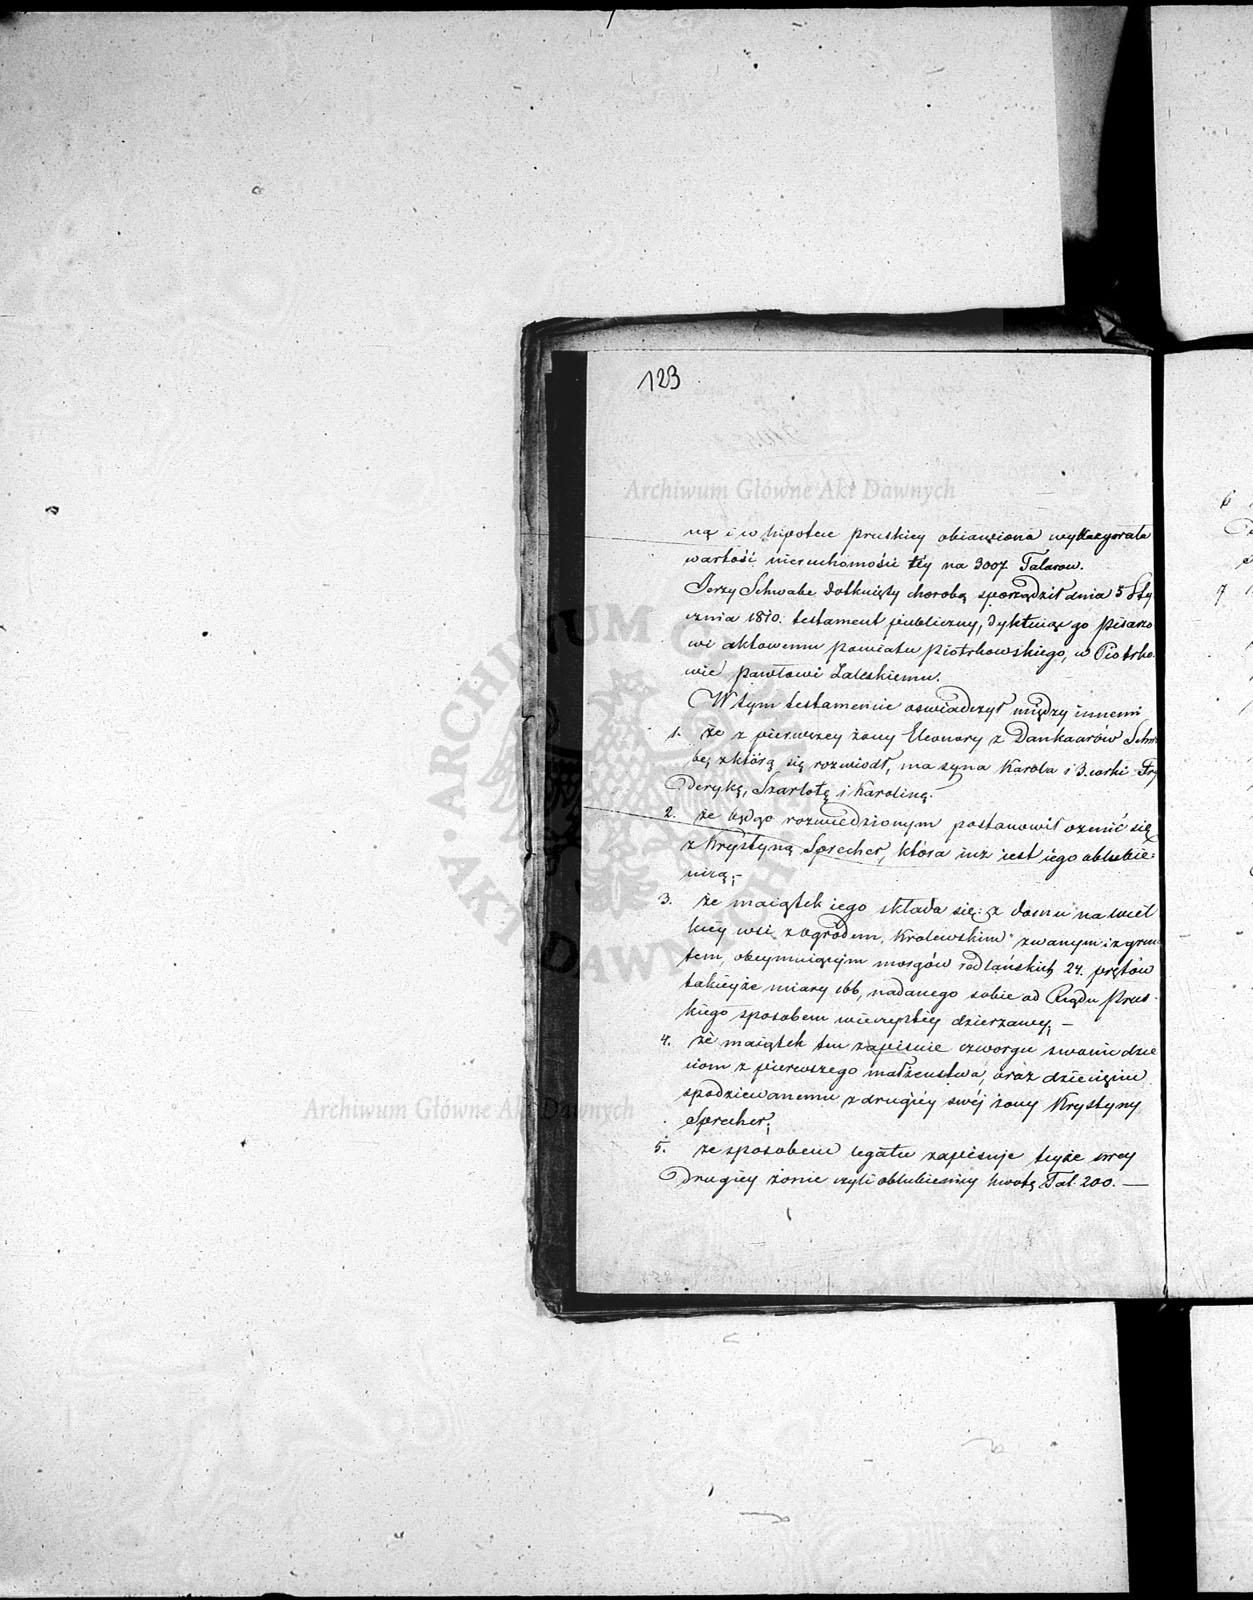 123
Archiwum Główne Akt Dawnych
ną i w hipotece pruskiey obiawiona
wartość nieruchomości téy na 3007 Talarow.
Jerzy Schwabe dotknięty chorobą sporządził dnia 5 Sty
cznia 1810. testament publiczny, dyktuiąc go Pisarzo
wi aktowemu powiatu Piotrkowskiego, w Piotrko
wie Pawłowi Zaleskiemu.
W tym testamencie oswiadczył między innemi
1. że z pierwszey żony Eleonory z Dankaarów Schwa
bą z którą się rozwiodł, ma syna Karola i 3. corki Fry
derykę, Szarlotę i Karolinę.
2. że będąc rozwiedzionym postanowił ożenić się
z Krystyną Sprecher, która iuż iest iego oblubie:
nicą;-
3. że maiątek iego składa się: z domu na wiel
kiéy wsi z ogrodem, Krolewskim" zwanym: z grun
tem, obeymuiącym morgów 24. prętów
takieyże miary 166, nadanego sobie od Rządu Prus-
kiego sposobem wieczystéy dzierżawy;-
4. że maiątek ten zapisuie czworgu swoim dzie
ciom z pierwszego małżenstwa, oraz dziecięciu
spodziewanemu z drugiéy swéj żony Krystyny
Sprecher;
5. że sposobem legatu zapisuje teyże swey
drugiey żonie czyli oblubienicy kwotę Tal. 200. —
ARCHIWUM GŁÓWNE AKT DAWNYCH
Archiwum Główne Akt Dawnych
6
7